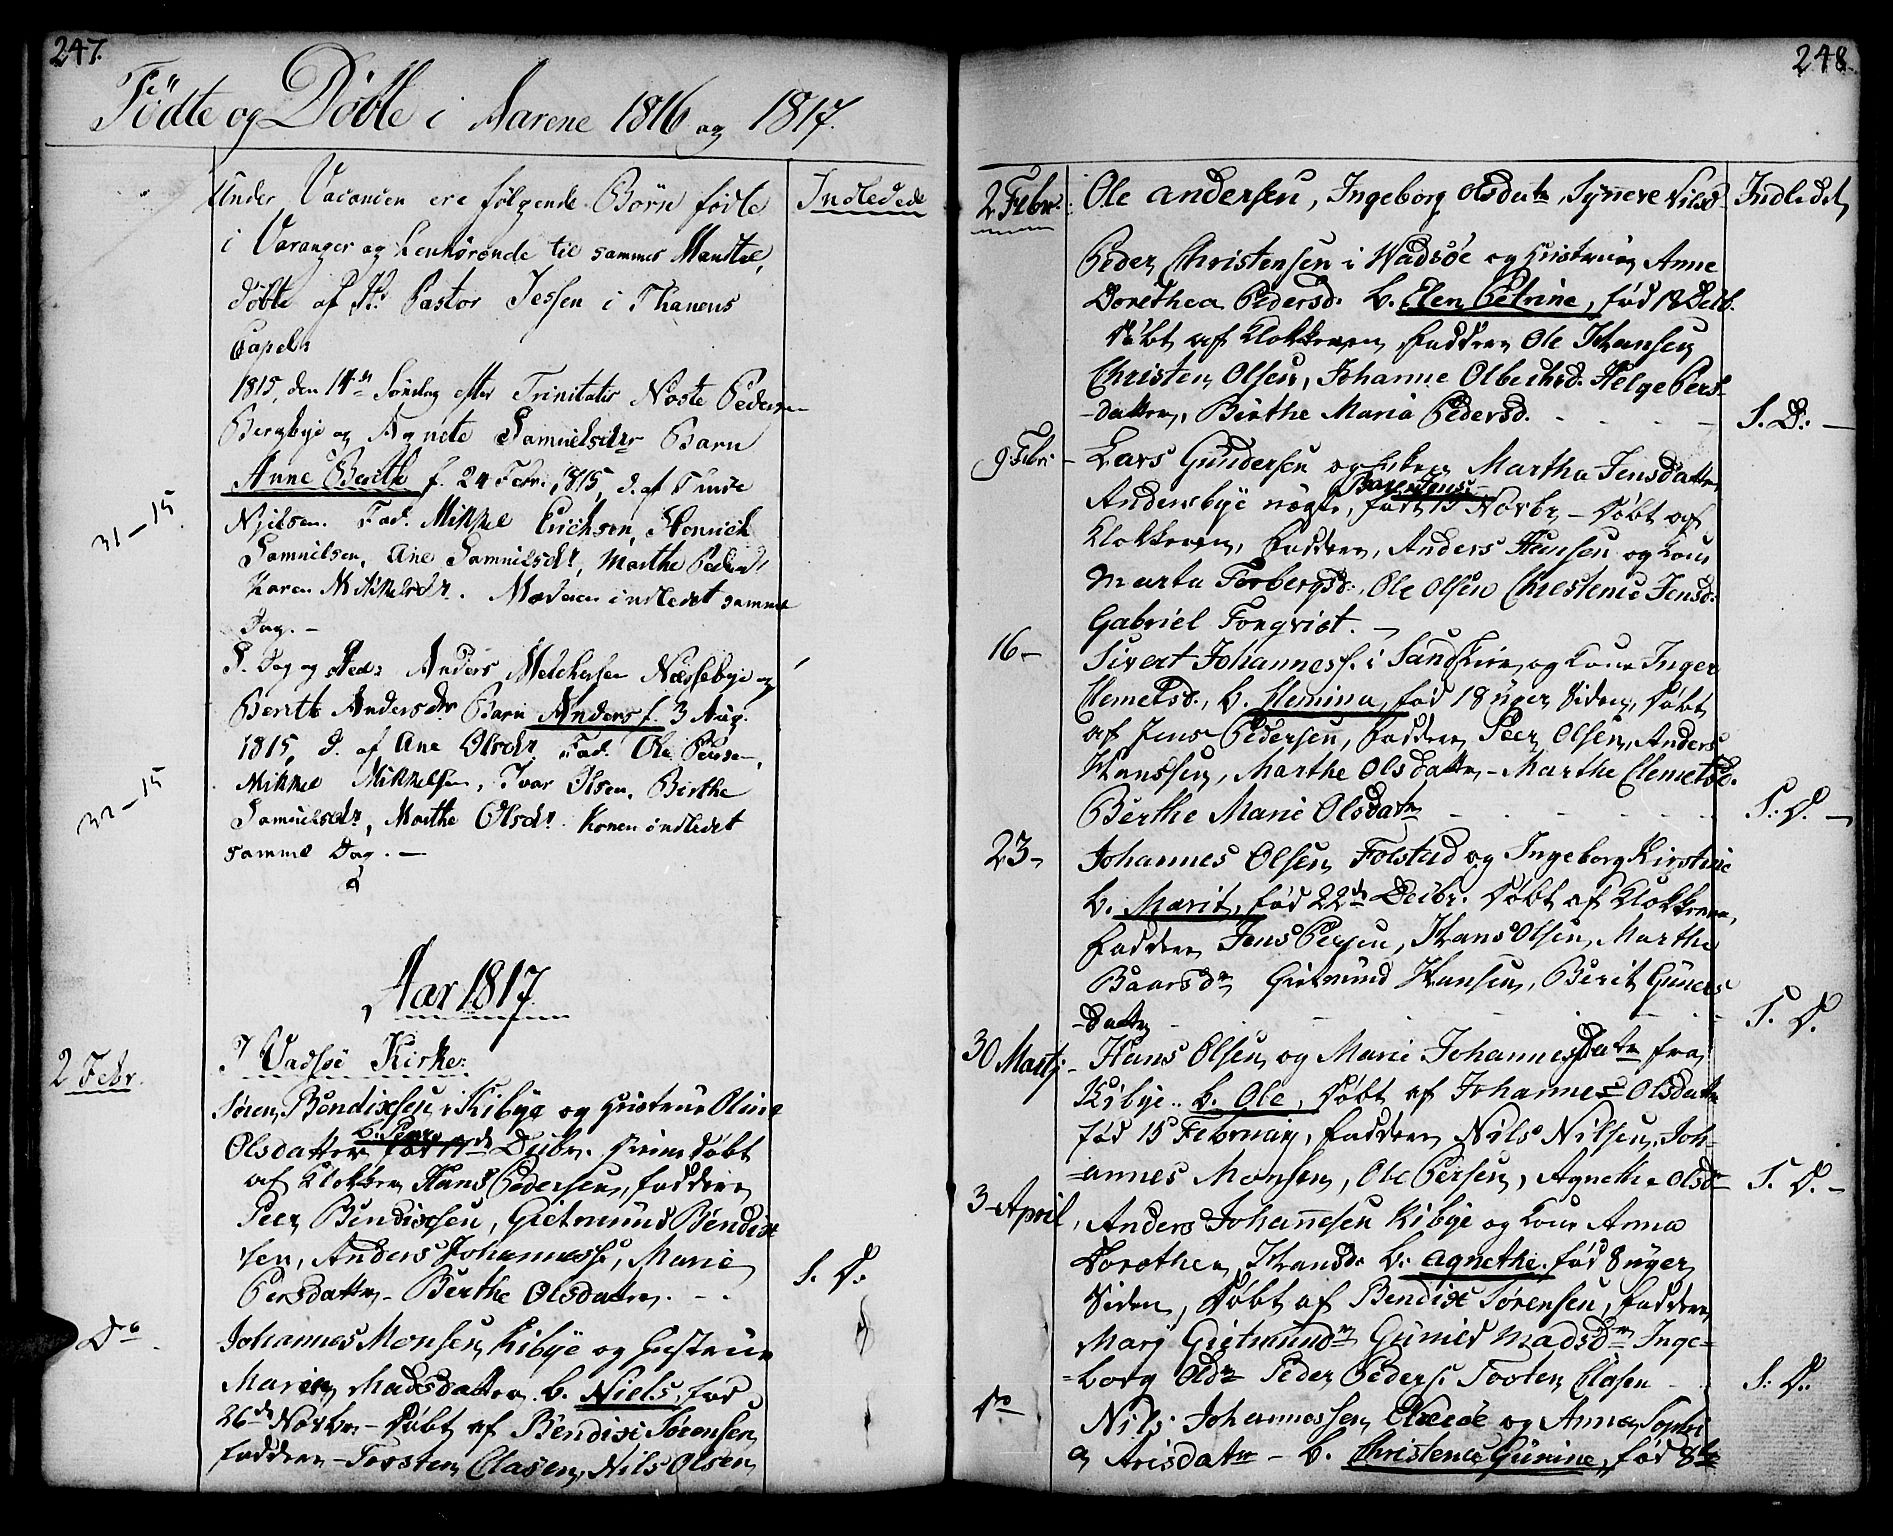 247.
Födte og Döbte i Aarene 1816 og 1817.
Under Vacancen ere følgende Börn födte
Indledede
i Varanger og henhörende til sammes Mandtal,
döbte af Hr Pastor Jessen i Thanens
Capel:
1815, den 14de Söndag efter Trinitatis Noste Pedersen
Bergbye og Agnete Samuelsdr Barn
Anne Berithe f. 24 Febr. 1815, d. af
31-15
Nielsen. Fad. Mikkel Erichsen, Henrich
Samuelsen, Ane Samuelsdr, Marthe Peders
Karen Mikkelsdr. Moderen indledet samme
Dag. -
S. Dag og Sted: Anders Melchersen Næssebye og
Berith Andersdr Barn Anders f. 3 Aug.
1815, d. af Ane Olsdr. Fad. Ole Persen,
32-15
Mikkel Mikkelsen, Ivar Olsen, Birthe
Samuelsdr, Marthe Olsdr. Konen indledet
samme Dag. -
Aar 1817.
I Vadsöe Kirke:
2 Febr.
Sören Bendixsen i Kibye og Hustrue Oline
b. Peer
Olsdatter föd 17de Decbr. hiemdöbt
af Klokker Hans Pedersen, faddere
Peer Bendixsen, Gietmund Bendix
sen, Anders Johannesse, Marie
Persdatter - Berthe Olsdatter. - -
S. D.
Do
Johannes Monsen Kibye og Hustrue
Maren Madsdatter b. Niels, föd
26de Novbr - döbt af Bendix Sörensen,
faddere - Torsten Clasen, Nils Olsen,
248.
2 Febr.
Ole Andersen, Ingeborg Olsdatr, Synneve Nilsd
Indledet
Peder Christensen i Wadsöe og Hustrue Anne
Dorethea Pedersd. b. Elen Petrine, föd 18 Decb.
döbt af Klokkeren, Faddere Ole Hansen
Christen Olsen, Johanne Olbechsd. Helge Pers-
-datter, Birthe Maria Pedersd.
S. D: -
9 Febr -
Lars Gundersen og Enken Martha Jensdatter
Barn Jens
Andersbye uægte, född 15 Novbr - döbt af
Klokkeren, Faddere, Anders Hansen og Kone
Marta Torbergsd: Ole Olsen Chrestence Jensd:
Gabriel Fonqvist. -
16 -
Sivert Johanness. i Sandskiær og Kone Inger
Clemetsd., b. Clemina, föd 18 Uger siden, döbt
af Jens Pedersen, Faddere Peer Olsen, Anders
Hanssen, Marthe Olsdatter - Marthe Clemetsd.
Berthe Marie Olsdatr
S. D. -
23 -
Johannes Olsen Folstad og Ingeborg Kirstine
b. Marit, föd 22de Decbr. döbt af Klokkeren,
Faddere Jens Persen, Hans Olsen, Marthe
Baarsdr Gietmund Hansen, Berit Guners
-datter
S. D.
30 Martj -
Hans Olsen og Marie Johannesdatr fra
Kibye .. b. Ole, döbt af Johannes Olsdatr
föd 15 Februarj, faddere Nils Nilsen, Joh-
=annes Monsen, Ole Persen, Agnethe Olsd
S. D. -
3 - April
Anders Johannesen Kibye og Kone Anna
Dorothea Hansdr. b. Agnethe. föd 8 Uger
siden, döbt af Bendix Sörensen, faddere
Marj Gietmundr Guner Madsdr Inge=
=borg Oldr Peder Peders. Torten Clasen
S: D.
Do
Nils. Johannessen Ekeröe og Anna Sophi
a Arisdatr - b. Christence Gunine, föd 8te